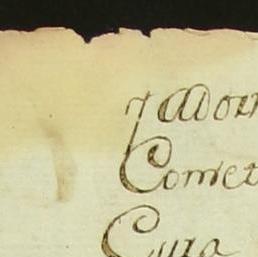 y ador
Comet
Cura